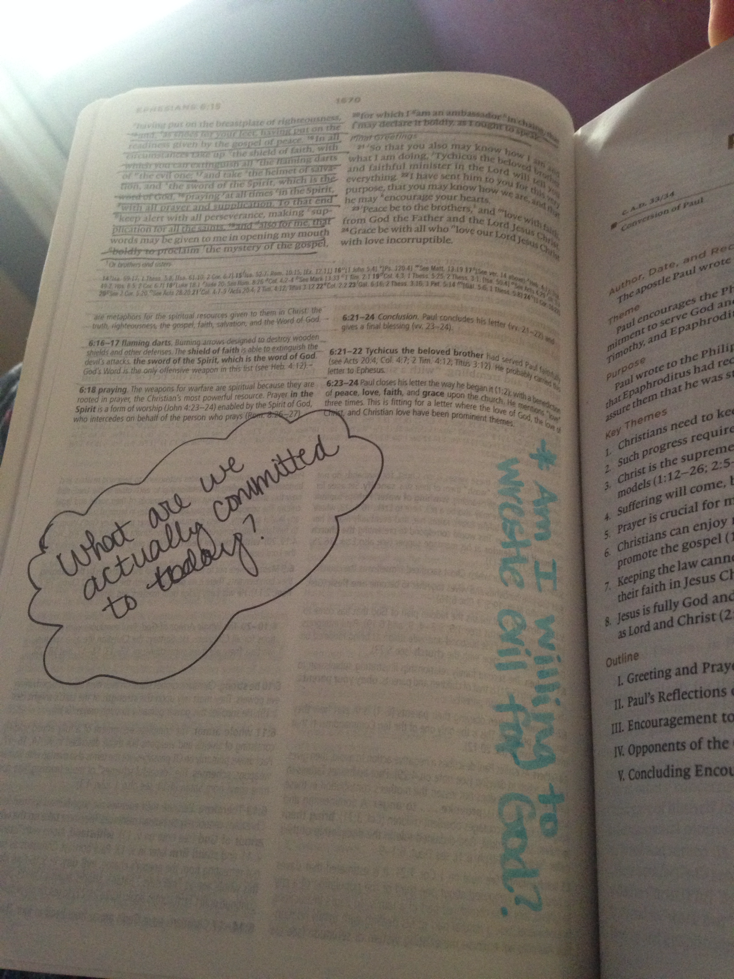 EPHESIANS 6:15
1670
having put on the breastplate of righteousness,
and, as shoes for your feet, having put on the
readiness given by the gospel of peace. In all
circumstances take up the shield of faith, with
which you can extinguish all the flaming darts
of the evil one; and take the helmet of salva-
tion, and the sword of the Spirit, which is the
word of God, praying at all times in the Spirit,
with all prayer and supplication. To that end
keep alert with all perseverance, making sup-
plication for all the saints, and also for me, that
words may be given to me in opening my mouth
boldly to proclaim the mystery of the gospel,
for which I am an ambassador in chains, that
I may declare it boldly, as I ought to speak.
Final Greetings
21 So that you also may know how I am and
what I am doing, Tychicus the beloved brother
and faithful minister in the Lord will tell you
everything. I have sent him to you for this very
purpose, that you may know how we are, and that
he may encourage your hearts.
Peace be to the brothers, and love with faith,
from God the Father and the Lord Jesus Christ.
Grace be with all who love our Lord Jesus Christ
with love incorruptible.
Or brothers and sisters
are metaphors for the spiritual resources given to them in Christ: the
truth, righteousness, the gospel, faith, salvation, and the Word of God.
6:16–17 flaming darts. Burning arrows designed to destroy wooden
shields and other defenses. The shield of faith is able to extinguish the
devil's attacks. the sword of the Spirit, which is the word of God.
God's Word is the only offensive weapon in this list (see Heb. 4:12)
6:18 praying. The weapons for warfare are spiritual because they are
rooted in prayer, the Christian's most powerful resource. Prayer in the
Spirit is a form of worship (John 4:23–24) enabled by the Spirit of God,
who intercedes on behalf of the person who prays (Rom. 8:26–27).
6:21–24 Conclusion. Paul concludes his letter (vv. 21–22) and
gives a final blessing (vv. 23–24).
6:21–22 Tychicus the beloved brother had served Paul faithfully
(see Acts 20:4; Col. 4:7; 2 Tim. 4:12; Titus 3:12). He probably carried this
letter to Ephesus.
6:23–24 Paul closes his letter the way he began it (1:2), with a benediction
of peace, love, faith, and grace upon the church. He mentions
three times. This is fitting for a letter where the love of God, the love of
Christ, and Christian love have been prominent themes.
What are we
actually committed
to today?
* Am I willing to
wrestle evil for God?
C. A.D. 33/34
Conversion of Paul
Author, Date, and Rec
The apostle Paul wrote
Theme
Paul encourages the Ph
mitment to serve God and
Timothy, and Epaphrodi
Purpose
Paul wrote to the Philip
that Epaphroditus had rec
assure them that he was s
Key Themes
1. Christians need to ke
2. Such progress require
3. Christ is the supreme
models (1:12–26; 2:5-
4. Suffering will come, b
5. Prayer is crucial for m
6. Christians can enjoy
promote the gospel (1
7. Keeping the law canno
their faith in Jesus C
8. Jesus is fully God and
as Lord and Christ (2:
Outline
I. Greeting and Praye
II. Paul's Reflections
III. Encouragement to
IV. Opponents of the
V. Concluding Encou